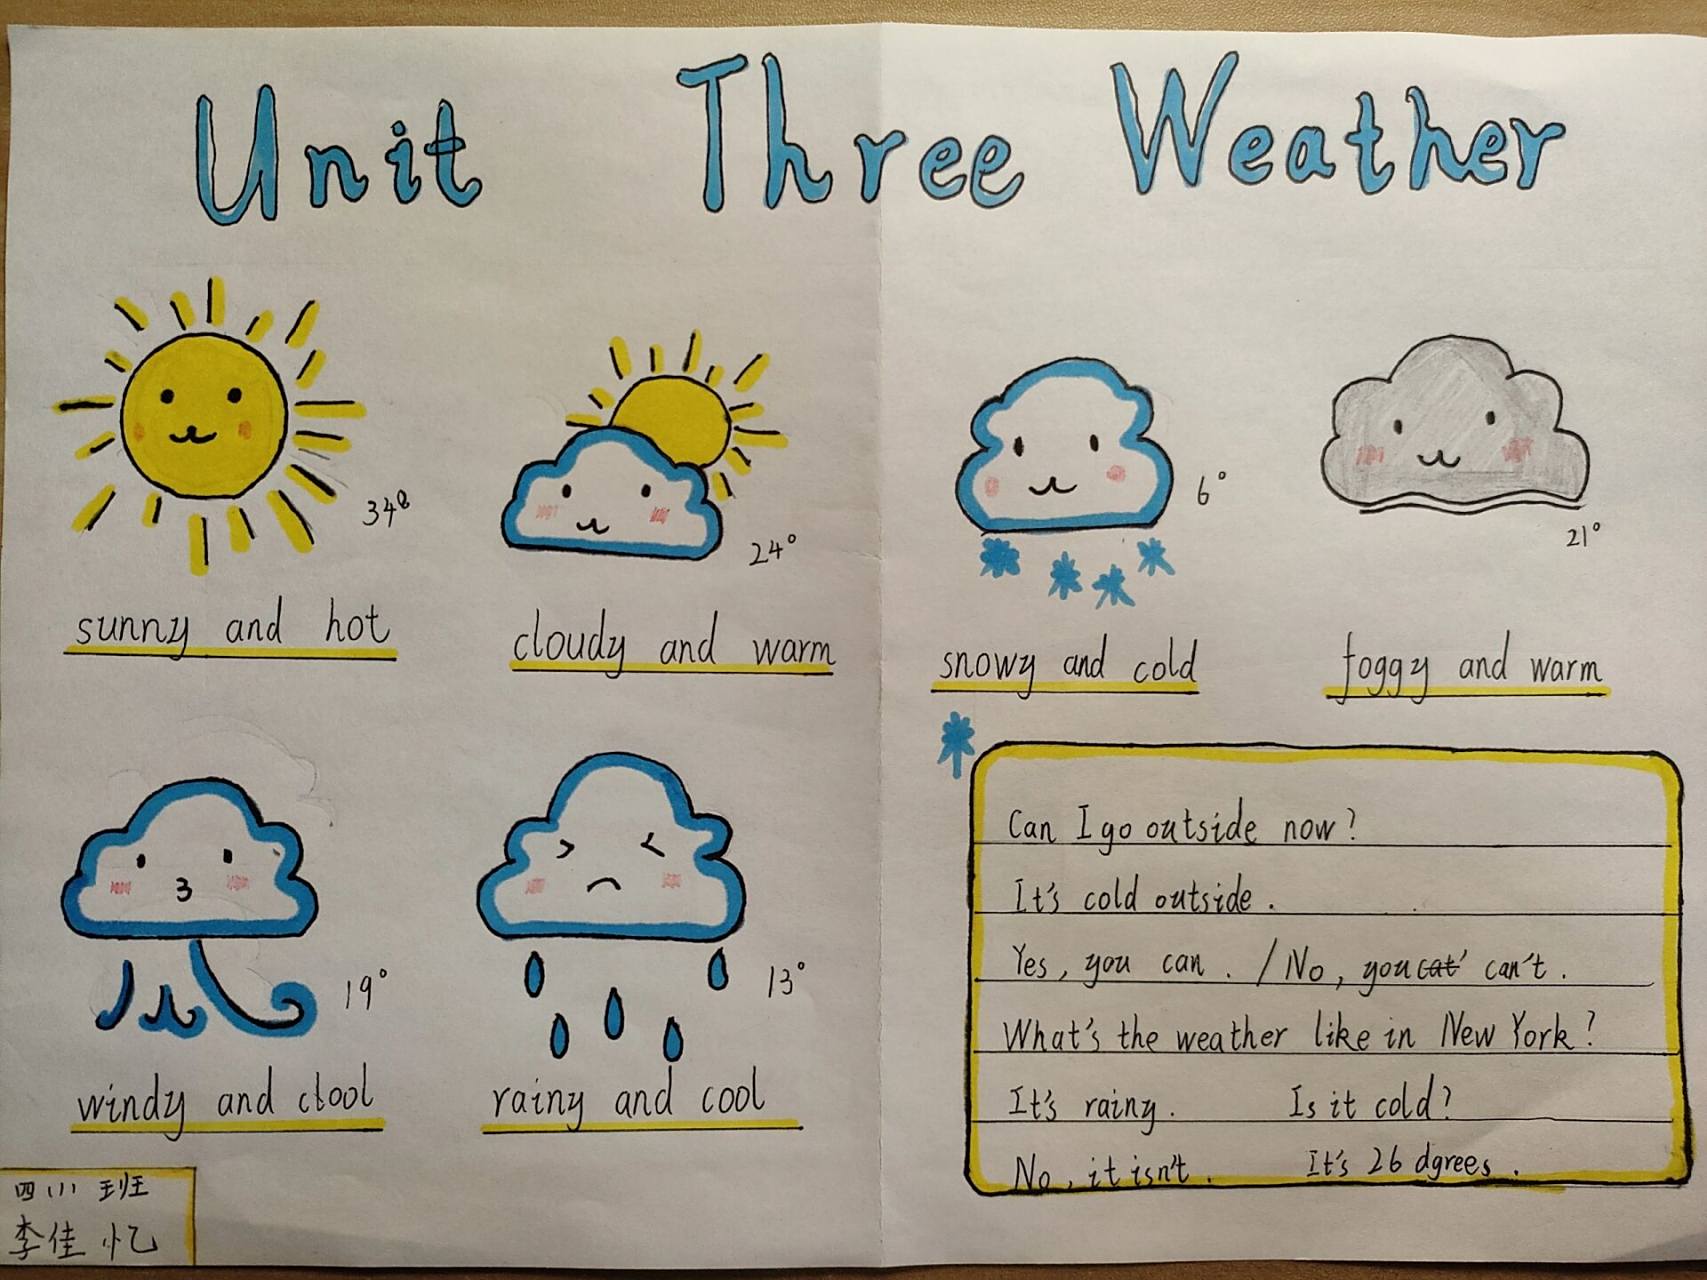 Unit Three Weather
34°
24°
6°
21°
sunny and hot
cloudy and warm
snowy and cold
foggy and warm
19°
13°
windy and clool
rainy and cool
Can I go outside now?
It's cold outside.
Yes, you can. / No, you cat' can't.
What's the weather like in New York?
It's rainy. Is it cold?
No, it isn't. It's 26 dgrees.
四(1)班
李佳忆